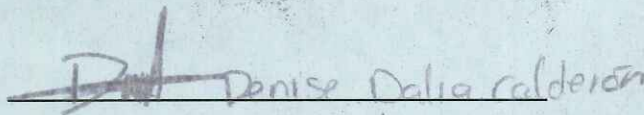 Denise Dalia Calderón